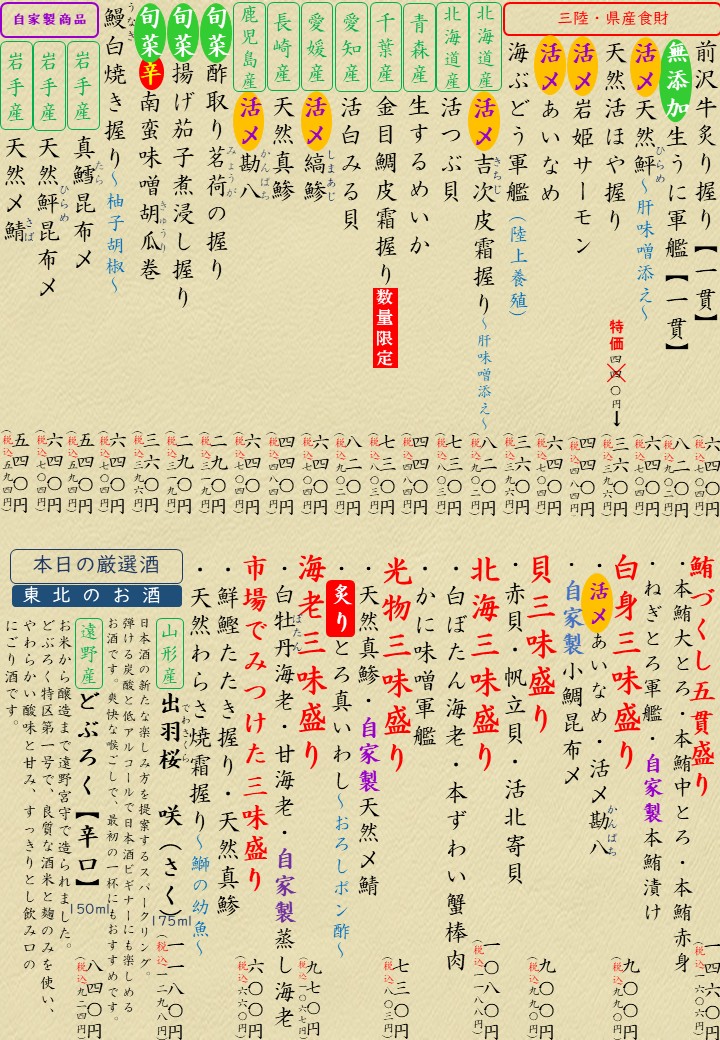 三陸・県産食財
前沢牛炙り握り【一貫】
六四〇円
(税込七〇四円)
無添加 生うに軍艦【一貫】
八二〇円
(税込九〇二円)
活〆 天然鮃 ～肝味噌添え～
ひらめ
六四〇円
(税込七〇四円)
天然活ほや握り
特価
四四〇円
三六〇円
(税込三九六円)
活〆 岩姫サーモン
四四〇円
(税込四八四円)
活〆 あいなめ
六四〇円
(税込七〇四円)
海ぶどう軍艦(陸上養殖)
三六〇円
(税込三九六円)
北海道産
活〆 吉次皮霜握り～肝味噌添え～
きちじ
八二〇円
(税込九〇二円)
北海道産
活つぶ貝
七三〇円
(税込八〇三円)
青森産
生するめいか
四四〇円
(税込四八四円)
千葉産
金目鯛皮霜握り 数量限定
七三〇円
(税込八〇三円)
愛知産
活白みる貝
八二〇円
(税込九〇二円)
愛媛産
活〆 縞鯵
しまあじ
六四〇円
(税込七〇四円)
長崎産
天然真鯵
四四〇円
(税込四八四円)
鹿児島産
活〆 勘八
かんぱち
六四〇円
(税込七〇四円)
旬菜 酢取り茗荷の握り
みょうが
二九〇円
(税込三一九円)
旬菜 揚げ茄子煮浸し握り
二九〇円
(税込三一九円)
旬菜 辛 南蛮味噌胡瓜巻
きゅうり
三六〇円
(税込三九六円)
鰻白焼き握り～柚子胡椒～
うなぎ
六四〇円
(税込七〇四円)
自家製商品
岩手産
真鱈昆布〆
たら
五四〇円
(税込五九四円)
岩手産
天然鮃昆布〆
ひらめ
六四〇円
(税込七〇四円)
岩手産
天然〆鯖
さば
五四〇円
(税込五九四円)
鮪づくし五貫盛り
・本鮪大とろ・本鮪中とろ・本鮪赤身
・ねぎとろ軍艦・自家製本鮪漬け
一四六〇円
白身三味盛り
・活〆あいなめ・活〆勘八
かんぱち
・自家製小鯛昆布〆
九〇〇円
(税込九九〇円)
貝三味盛り
・赤貝・帆立貝・活北寄貝
九〇〇円
(税込九九〇円)
北海三味盛り
・白ぼたん海老・本ずわい蟹棒肉
・かに味噌軍艦
一〇八〇円
(税込一一八八円)
光物三味盛り
・天然真鯵・自家製天然〆鯖
・炙りとろ真いわし～おろしポン酢～
七三〇円
(税込八〇三円)
海老三味盛り
・白牡丹海老・甘海老・自家製蒸し海老
ぼたん
九七〇円
(税込一〇六七円)
市場でみつけた三味盛り
・鮮鰹たたき握り・天然真鯵
・天然わらさ焼霜握り～鰤の幼魚～
六〇〇円
(税込六六〇円)
本日の厳選酒
東北のお酒
山形産
出羽桜 咲(さく)
でわざくら
175ml
一一八〇円
(税込一二九八円)
日本酒の新たな楽しみ方を提案するスパークリング。
弾ける炭酸と低アルコールで日本酒ビギナーにも楽しめる
お酒です。爽快な喉ごしで、最初の一杯にもおすすめです。
遠野産
どぶろく【辛口】
150ml
八四〇円
(税込九二四円)
お米から醸造まで遠野宮守で造られました。
どぶろく特区第一号で、良質な酒米と麹のみを使い、
やわらかい酸味と甘み、すっきりとし飲み口の
にごり酒です。